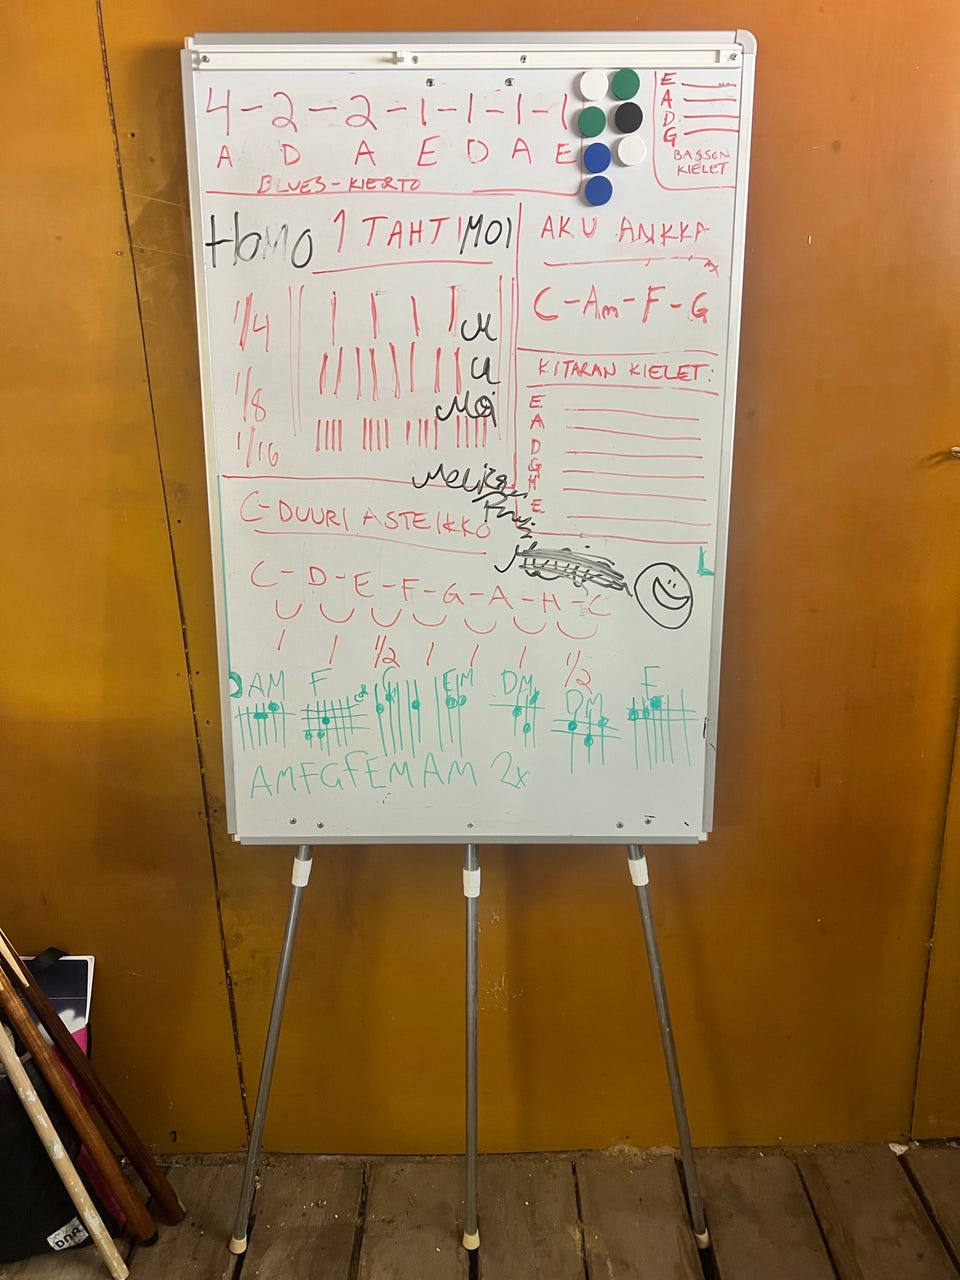 4-2-2-1-1-1-1
A D A E D A E
BLUES-KIERTO
E
A
D
G
BASSON
KIELET
Homo 1 TAHTI MOI
1/4
1/8
1/16
Moi
AKU ANKKA
C-Am-F-G
KITARAN KIELET:
E
A
D
G
H
E
C-DUURI ASTEIKKO
C-D-E-F-G-A-H-C
1 1 1/2 1 1 1 1/2
AM F G EM DM DM E
AMFGFEMAM 2x
DNA